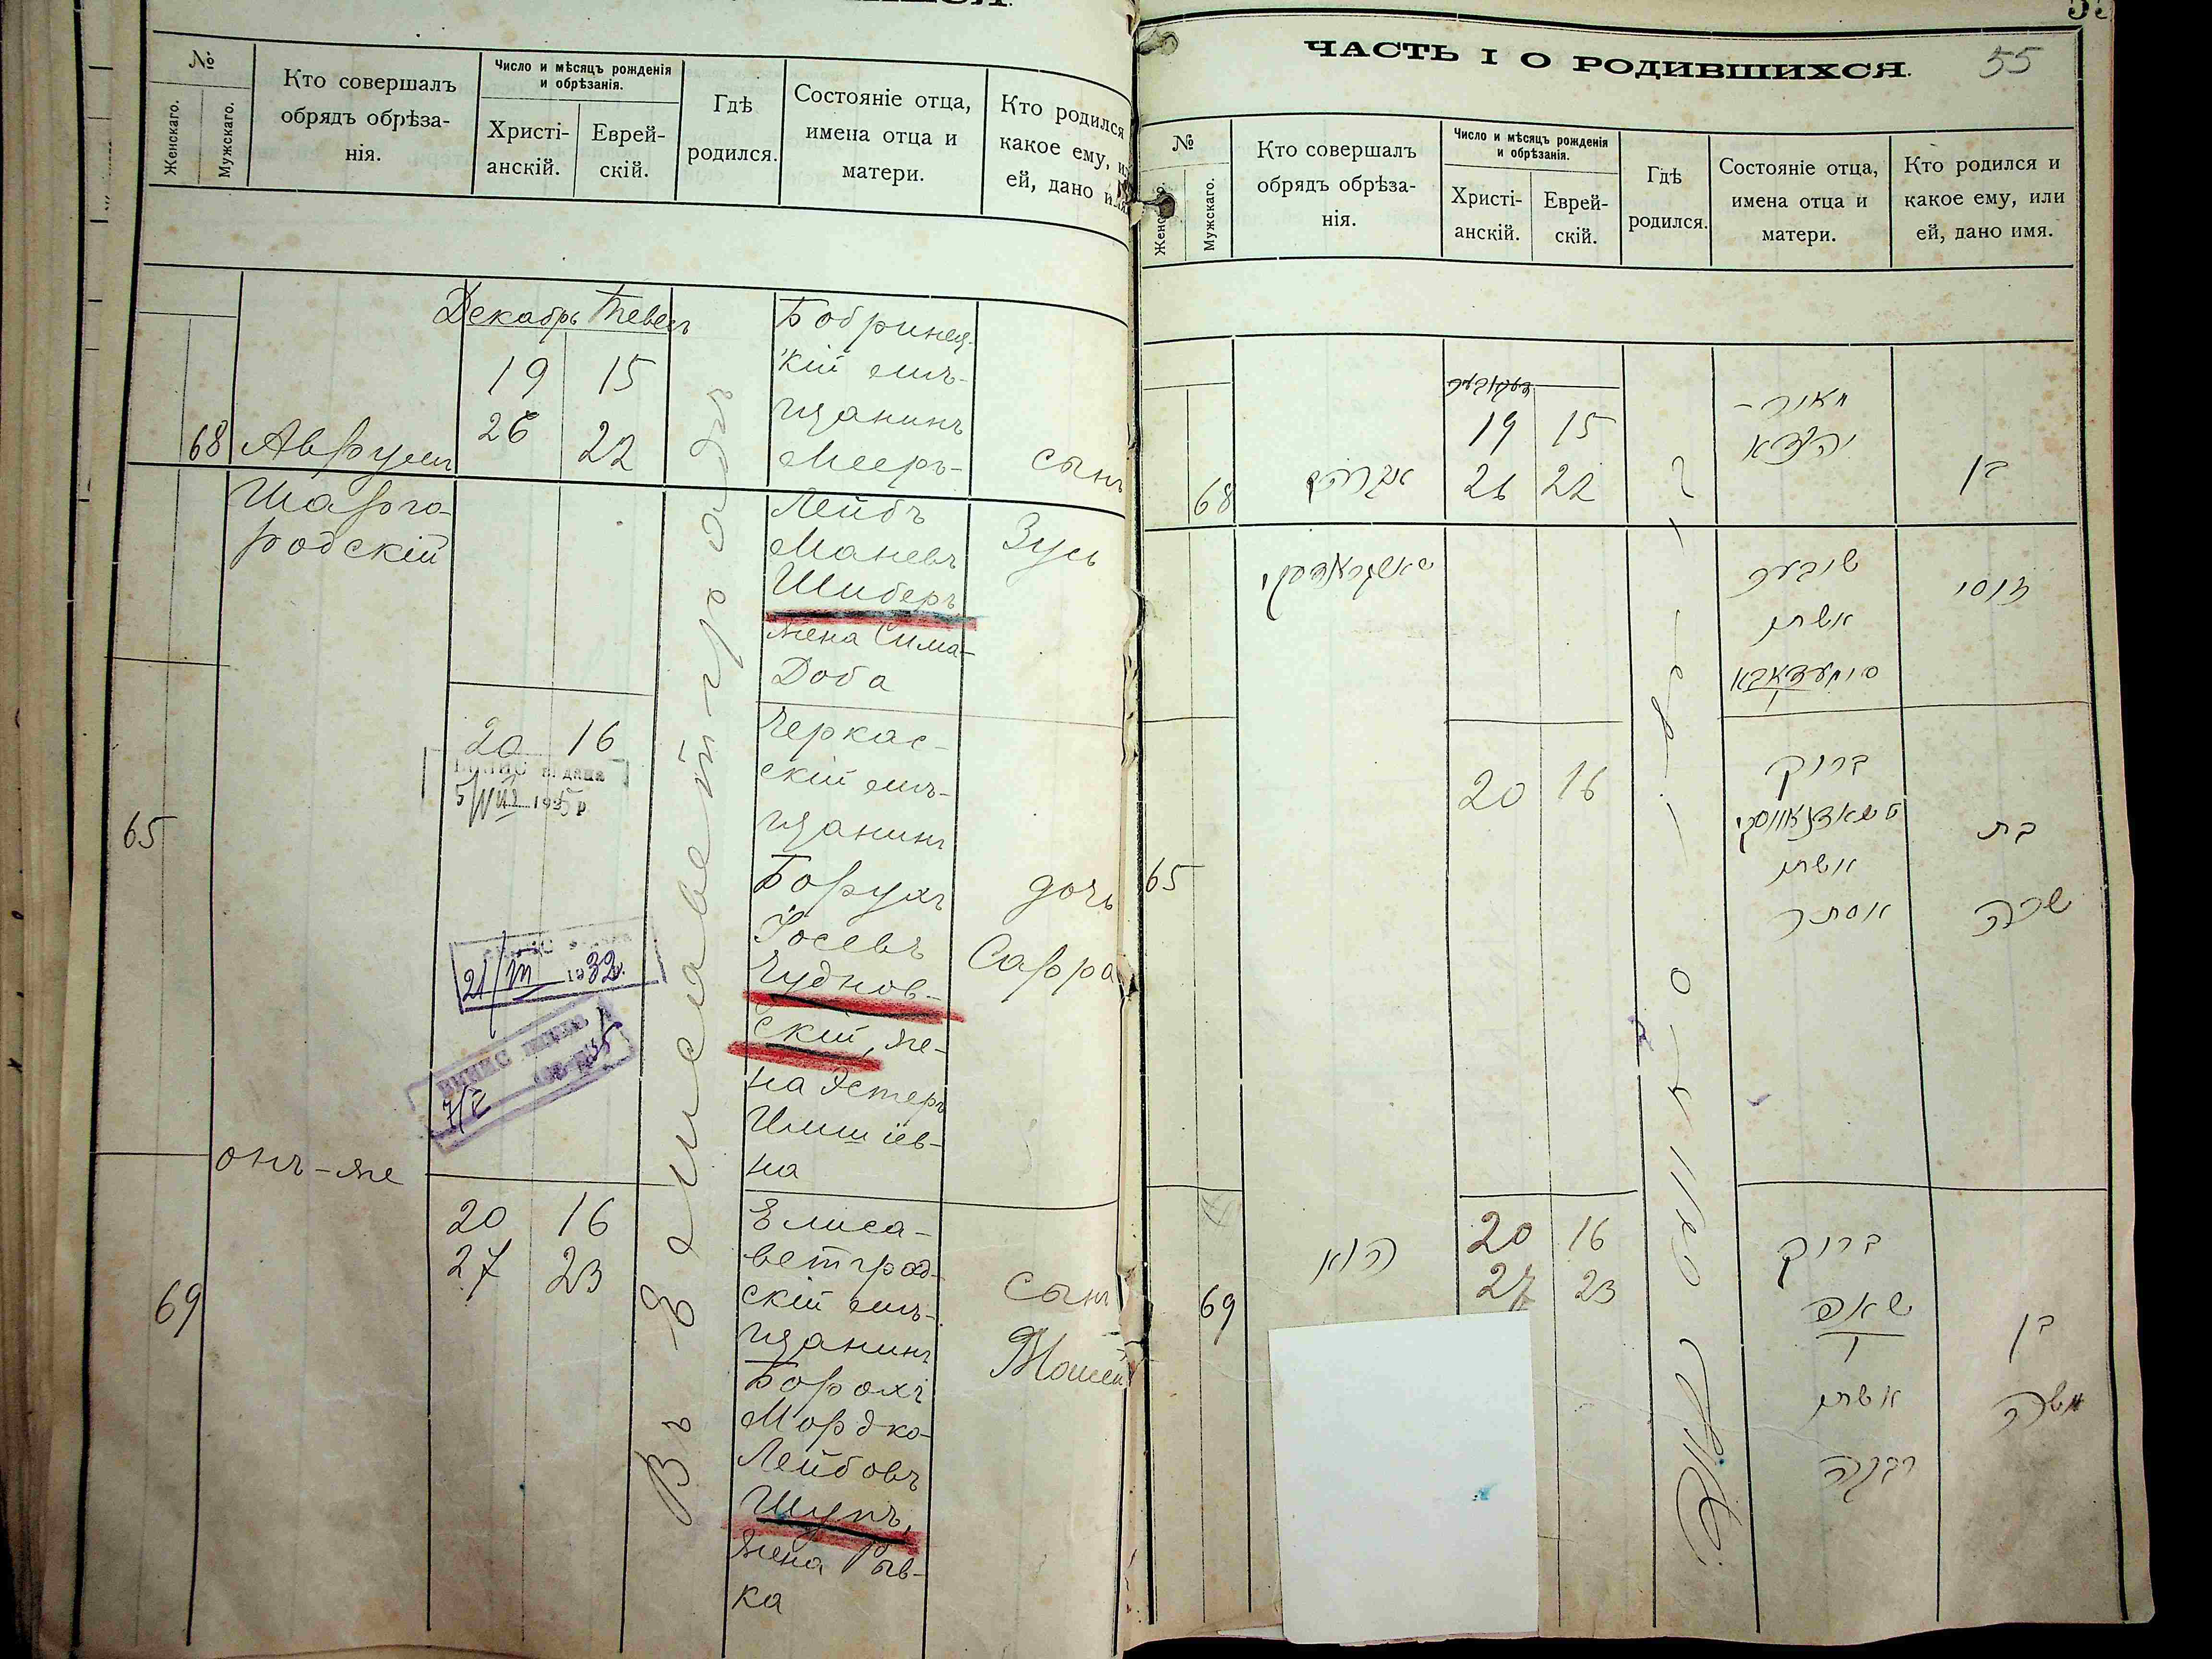 №
Женскаго.
Мужскаго.
Кто совершалъ
обрядъ обрѣза-
нія.
Число и мѣсяцъ рожденія
и обрѣзанія.
Христі-
анскій.
Еврей-
скій.
Гдѣ
родился.
Состояніе отца,
имена отца и
матери.
Кто родился
какое ему,
ей, дано имя
68
Аврумъ
Шарго-
родскій
Декабрь Тевесъ
19 15
26 22
Въ Елисаветградѣ
Бобринец-
кій мѣ-
щанинъ
Мееръ-
Лейбъ
Маневъ
Шиберъ
жена Сима-
Доба
сынъ
Зусь
65
20 16
5/VIII 1935 р
21/III 1932
7/2 35
Черкас-
скій мѣ-
щанинъ
Борухъ
Іосевъ
Чуднов-
скій, же-
на Эстеръ
на
дочь
Сарра
69
онъ-же
20 16
27 23
Елиса-
ветград-
скій мѣ-
щанинъ
Борохъ
Мордко-
Лейбовъ
Шупъ,
жена Рыв-
ка
сынъ
Мошей
ЧАСТЬ I О РОДИВШИХСЯ.
55
№
Мужскаго.
Кто совершалъ
обрядъ обрѣза-
нія.
Число и мѣсяцъ рожденія
и обрѣзанія.
Христі-
анскій.
Еврей-
скій.
Гдѣ
родился.
Состояніе отца,
имена отца и
матери.
Кто родился и
какое ему, или
ей, дано имя.
68
אברהם
19 15
26 22
מאיר-
אשתו
בן
זוסי
65
20 16
ברוך
אשתו
אסתר
בת
שרה
69
הוא
20 16
27 23
ברוך
אשתו
רבקה
בן
משה